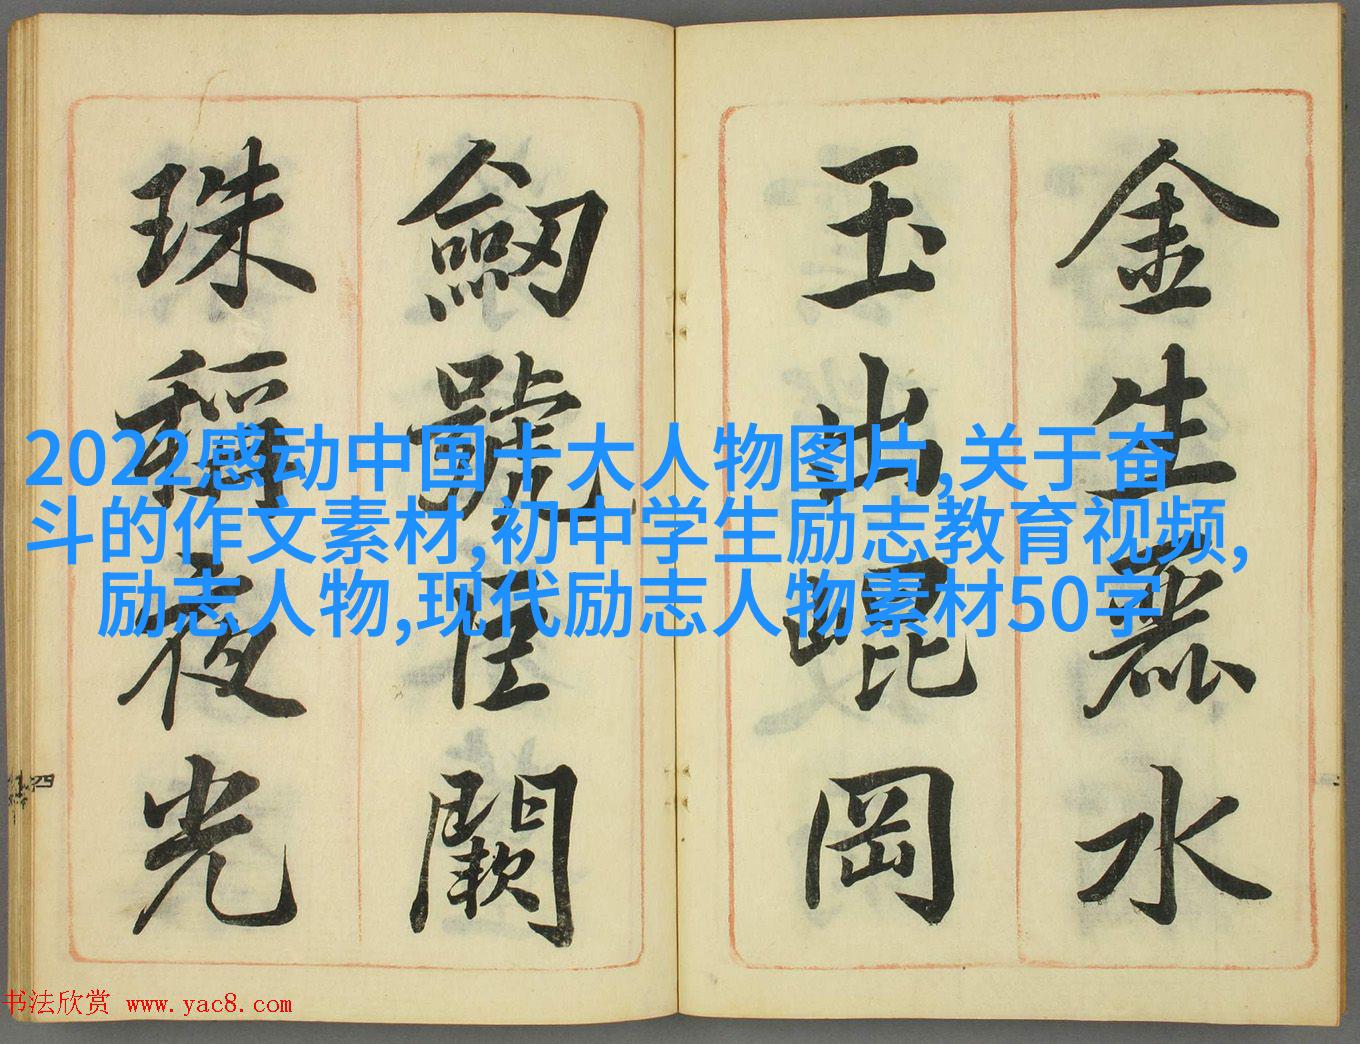 金生麗水
玉出崐岡
劒號巨闕
珠稱夜光
2022感动中国十大人物图片,关于奋
斗的作文素材,初中学生励志教育视频,
励志人物,现代励志人物素材50字
四
书法欣赏 www.yac8.com